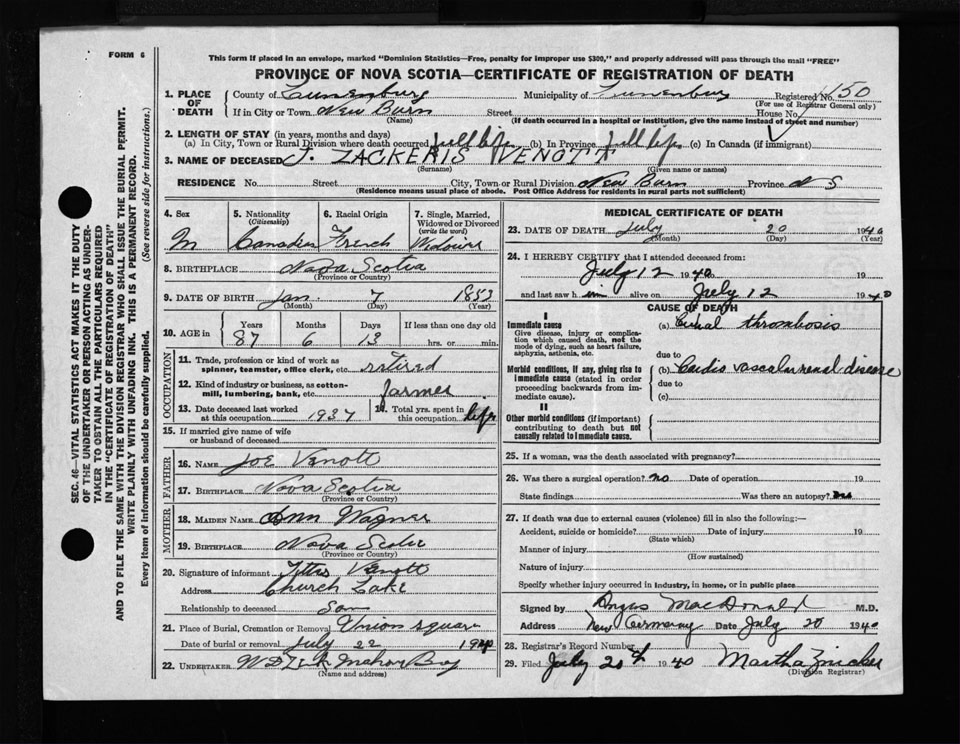 FORM 6
This form if placed in an envelope, marked "Dominion Statistics—Free, penalty for improper use $300," and properly addressed will pass through the mail "FREE"
PROVINCE OF NOVA SCOTIA—CERTIFICATE OF REGISTRATION OF DEATH
SEC. 46—VITAL STATISTICS ACT MAKES IT THE DUTY
OF THE UNDERTAKER OR PERSON ACTING AS UNDER-
TAKER TO OBTAIN ALL THE PARTICULARS REQUIRED
IN THE "CERTIFICATE OF REGISTRATION OF DEATH"
AND TO FILE THE SAME WITH THE DIVISION REGISTRAR WHO SHALL ISSUE THE BURIAL PERMIT.
WRITE PLAINLY WITH UNFADING INK. THIS IS A PERMANENT RECORD.
Every item of information should be carefully supplied. (See reverse side for instructions.)
1. PLACE OF DEATH
County of Lunenburg Municipality of Lunenburg Registered No. 150
(For use of Registrar General only)
If in City or Town New Burn Street House No.
(Name) (If death occurred in a hospital or institution, give the name instead of street and number)
2. LENGTH OF STAY (in years, months and days)
(a) In City, Town or Rural Division where death occurred full life (b) In Province full life (c) In Canada (if immigrant)
3. NAME OF DECEASED J. ZACKERIS VENOTT
(Surname) (Given name or names)
RESIDENCE No. Street City, Town or Rural Division New Burn Province N S
(Residence means usual place of abode. Post Office Address for residents in rural parts not sufficient)
4. Sex
M
5. Nationality
(Citizenship)
Canadian
6. Racial Origin
French
7. Single, Married,
Widowed or Divorced
(write the word)
8. BIRTHPLACE Nova Scotia
(Province or Country)
9. DATE OF BIRTH Jan. 7 1853
(Month) (Day) (Year)
10. AGE in
Years Months Days If less than one day old
87 6 13 hrs. or min.
OCCUPATION
11. Trade, profession or kind of work as
spinner, teamster, office clerk, etc. retired
12. Kind of industry or business, as cotton-
mill, lumbering, bank, etc. farmer
13. Date deceased last worked
at this occupation 1937
14. Total yrs. spent in
this occupation life
15. If married give name of wife
or husband of deceased
FATHER
16. NAME Joe Venott
17. BIRTHPLACE Nova Scotia
(Province or Country)
MOTHER
18. MAIDEN NAME Ann Wagner
19. BIRTHPLACE Nova Scotia
(Province or Country)
20. Signature of informant Venott
Address Church Lake
Relationship to deceased Son
21. Place of Burial, Cremation or Removal Union square
Date of burial or removal July 22 1940
22. UNDERTAKER Mahon Bay
(Name and address)
MEDICAL CERTIFICATE OF DEATH
23. DATE OF DEATH July 20 1940
(Month) (Day) (Year)
24. I HEREBY CERTIFY that I attended deceased from:
July 12 1940 19
and last saw him alive on July 12 1940
CAUSE OF DEATH
I
Immediate cause
Give disease, injury or complica-
tion which caused death, not the
mode of dying, such as heart failure,
asphyxia, asthenia, etc.
(a) thrombosis
due to
Morbid conditions, if any, giving rise to
immediate cause (stated in order
proceeding backwards from im-
mediate cause).
(b) Cardio vascular renal disease
due to
(c)
II
Other morbid conditions (if important)
contributing to death but not
causally related to immediate cause.
25. If a woman, was the death associated with pregnancy?
26. Was there a surgical operation? no Date of operation 19
State findings Was there an autopsy? no
27. If death was due to external causes (violence) fill in also the following:—
Accident, suicide or homicide? Date of injury 19
(State which)
Manner of injury
(How sustained)
Nature of injury
Specify whether injury occurred in industry, in home, or in public place
Signed by Angus MacDonald M.D.
Address New Germany Date July 20 1940
28. Registrar's Record Number
29. Filed July 20th 1940 Martha Zwicker
(Division Registrar)